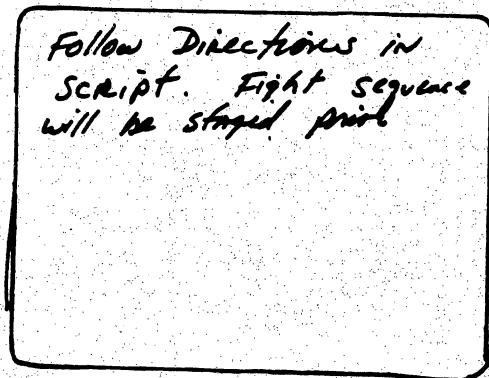 Follow Directions in
Script. Fight sequence
will be staged prior